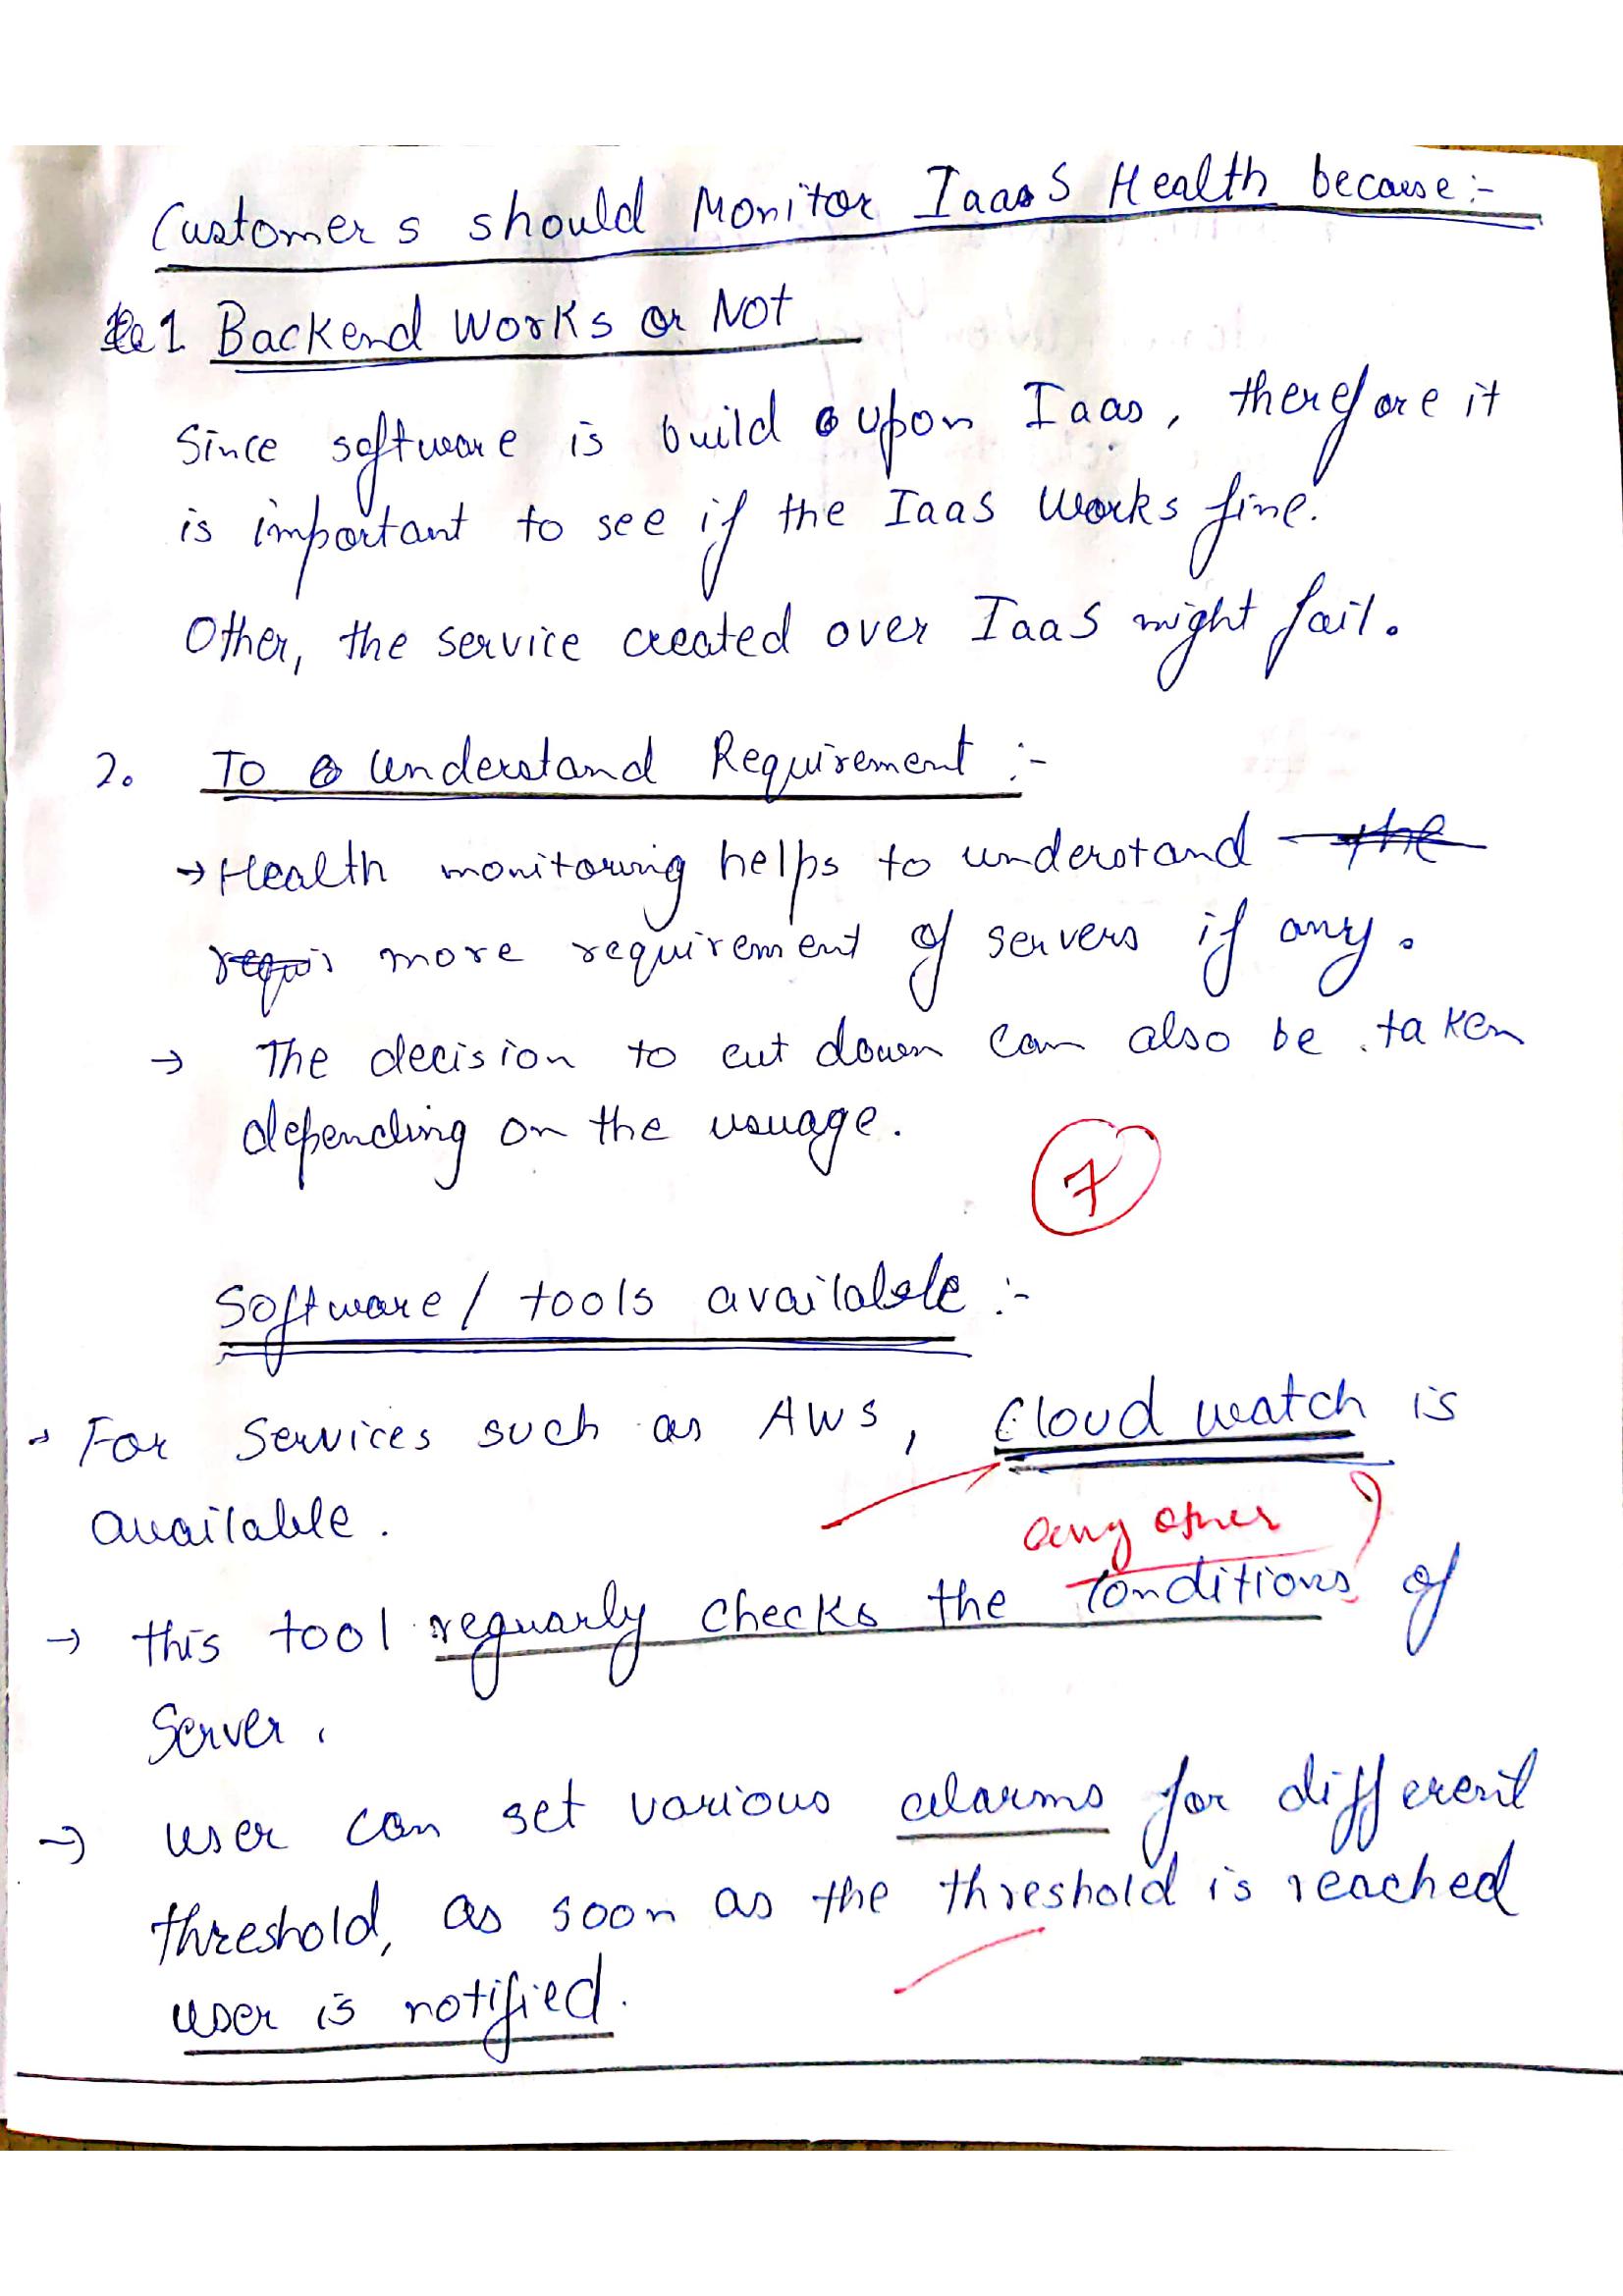 Customers should Monitor IaaS Health because:-
1 Backend Works or Not
Since software is build upon Iaas, therefore it
is important to see if the IaaS Works fine.
Other, the service created over IaaS might fail.
2. To Understand Requirement :-
→ Health monitoring helps to understand the
requi more requirement of servers if any.
→ The decision to cut down can also be taken
depending on the usuage.
7
Software / tools available :-
→ For Services such as AWS, Cloud watch is
available.
any other ?
→ this tool reguarly checks the Conditions of
Server.
→ user can set various alarms for different
threshold, as soon as the threshold is reached
user is notified.